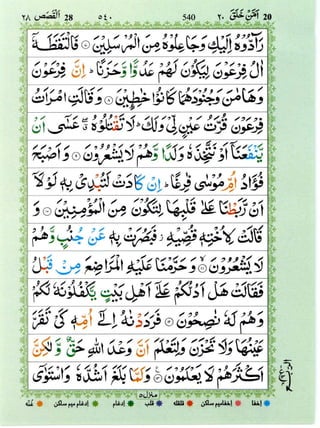 ٢٨ القصص 28 ٥٤٠ 540 امن خلق ٢٠ 20
رَآدُّوْهُ اِلَيْكِ وَجَاعِلُوْهُ مِنَ الْمُرْسَلِيْنَ ۞ فَالْتَقَطَهٗۤ
اٰلُ فِرْعَوْنَ لِيَكُوْنَ لَهُمْ عَدُوًّا وَّحَزَنًا ؕ اِنَّ فِرْعَوْنَ
وَهَامٰنَ وَجُنُوْدَهُمَا كَانُوْا خٰطِـِٕيْنَ ۞ وَقَالَتِ امْرَاَتُ
فِرْعَوْنَ قُرَّتُ عَيْنٍ لِّيْ وَلَكَ ؕ لَا تَقْتُلُوْهُ ۖ عَسٰۤى اَنْ
يَّنْفَعَنَاۤ اَوْ نَتَّخِذَهٗ وَلَدًا وَّهُمْ لَا يَشْعُرُوْنَ ۞ وَاَصْبَحَ
فُؤَادُ اُمِّ مُوْسٰى فٰرِغًا ؕ اِنْ كَادَتْ لَتُبْدِيْ بِهٖ لَوْلَاۤ
اَنْ رَّبَطْنَا عَلٰى قَلْبِهَا لِتَكُوْنَ مِنَ الْمُؤْمِنِيْنَ ۞ وَ
قَالَتْ لِاُخْتِهٖ قُصِّيْهِ ؗ فَبَصُرَتْ بِهٖ عَنْ جُنُبٍ وَّهُمْ
لَا يَشْعُرُوْنَ ۞ وَحَرَّمْنَا عَلَيْهِ الْمَرَاضِعَ مِنْ قَبْلُ
فَقَالَتْ هَلْ اَدُلُّكُمْ عَلٰۤى اَهْلِ بَيْتٍ يَّكْفُلُوْنَهٗ لَكُمْ
وَهُمْ لَهٗ نٰصِحُوْنَ ۞ فَرَدَدْنٰهُ اِلٰۤى اُمِّهٖ كَيْ تَقَرَّ
عَيْنُهَا وَلَا تَحْزَنَ وَلِتَعْلَمَ اَنَّ وَعْدَ اللّٰهِ حَقٌّ وَّلٰكِنَّ
اَكْثَرَهُمْ لَا يَعْلَمُوْنَ ۞ وَلَمَّا بَلَغَ اَشُدَّهٗ وَاسْتَوٰۤى
منزل ٥
اخفا اخفا میم ساکن قلقلہ قلب ادغام ادغام میم ساکن غنّہ